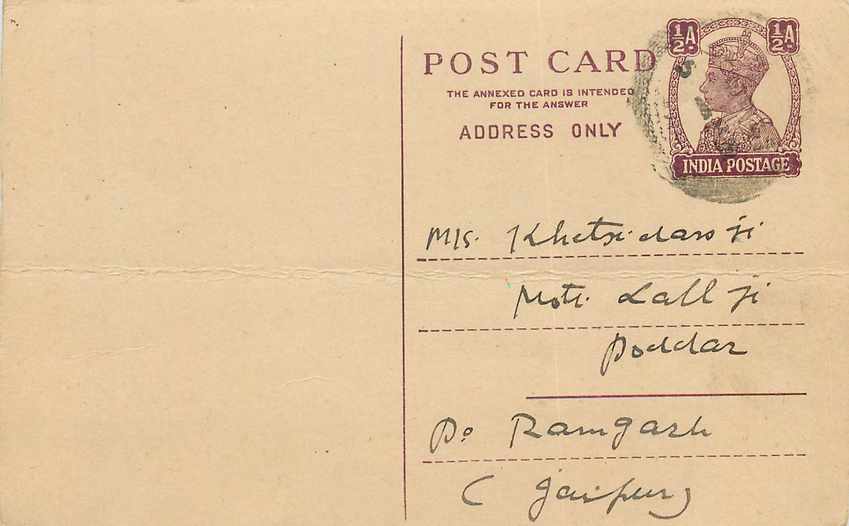 ½A ½A
POST CARD
THE ANNEXED CARD IS INTENDED
FOR THE ANSWER
ADDRESS ONLY
INDIA POSTAGE
M/s. Khetsidass ji
Moti Lall ji
Poddar
Po Ramgarh
(Jaipur)